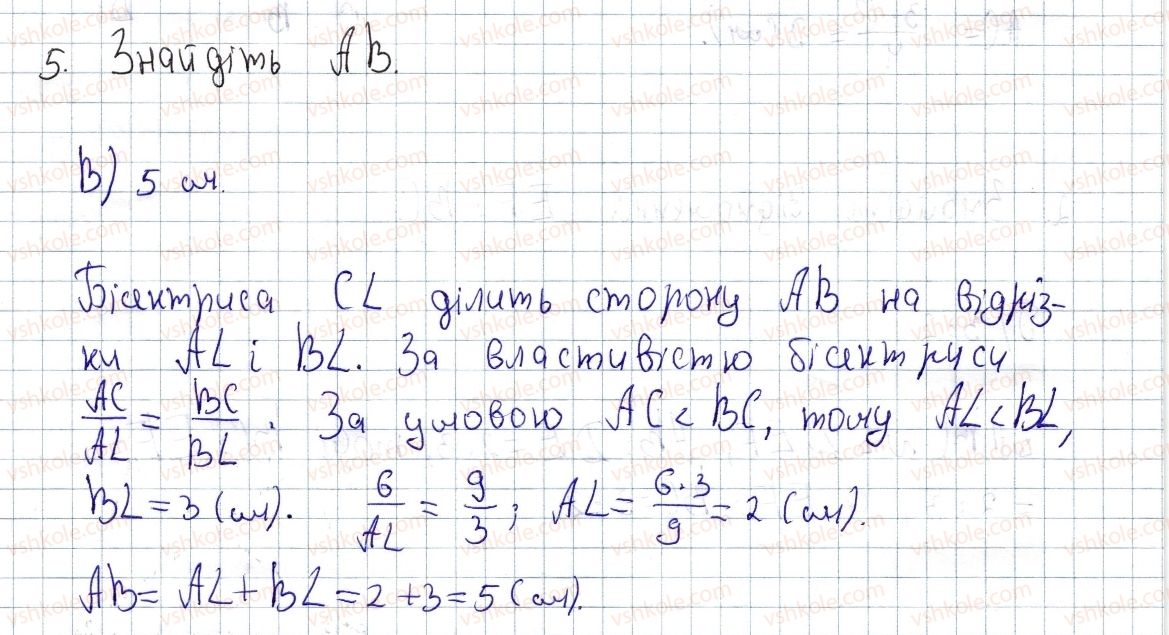 5. Знайдіть AB.
В) 5 см.
Бісектриса CL ділить сторону AB на відріз-
ки AL і BL. За властивістю бісектриси
AC/AL = BC/BL. За умовою AC < BC, тому AL < BL,
BL = 3 (см). 6/AL = 9/3; AL = 6·3/9 = 2 (см).
AB = AL + BL = 2 + 3 = 5 (см).
vshkole.com